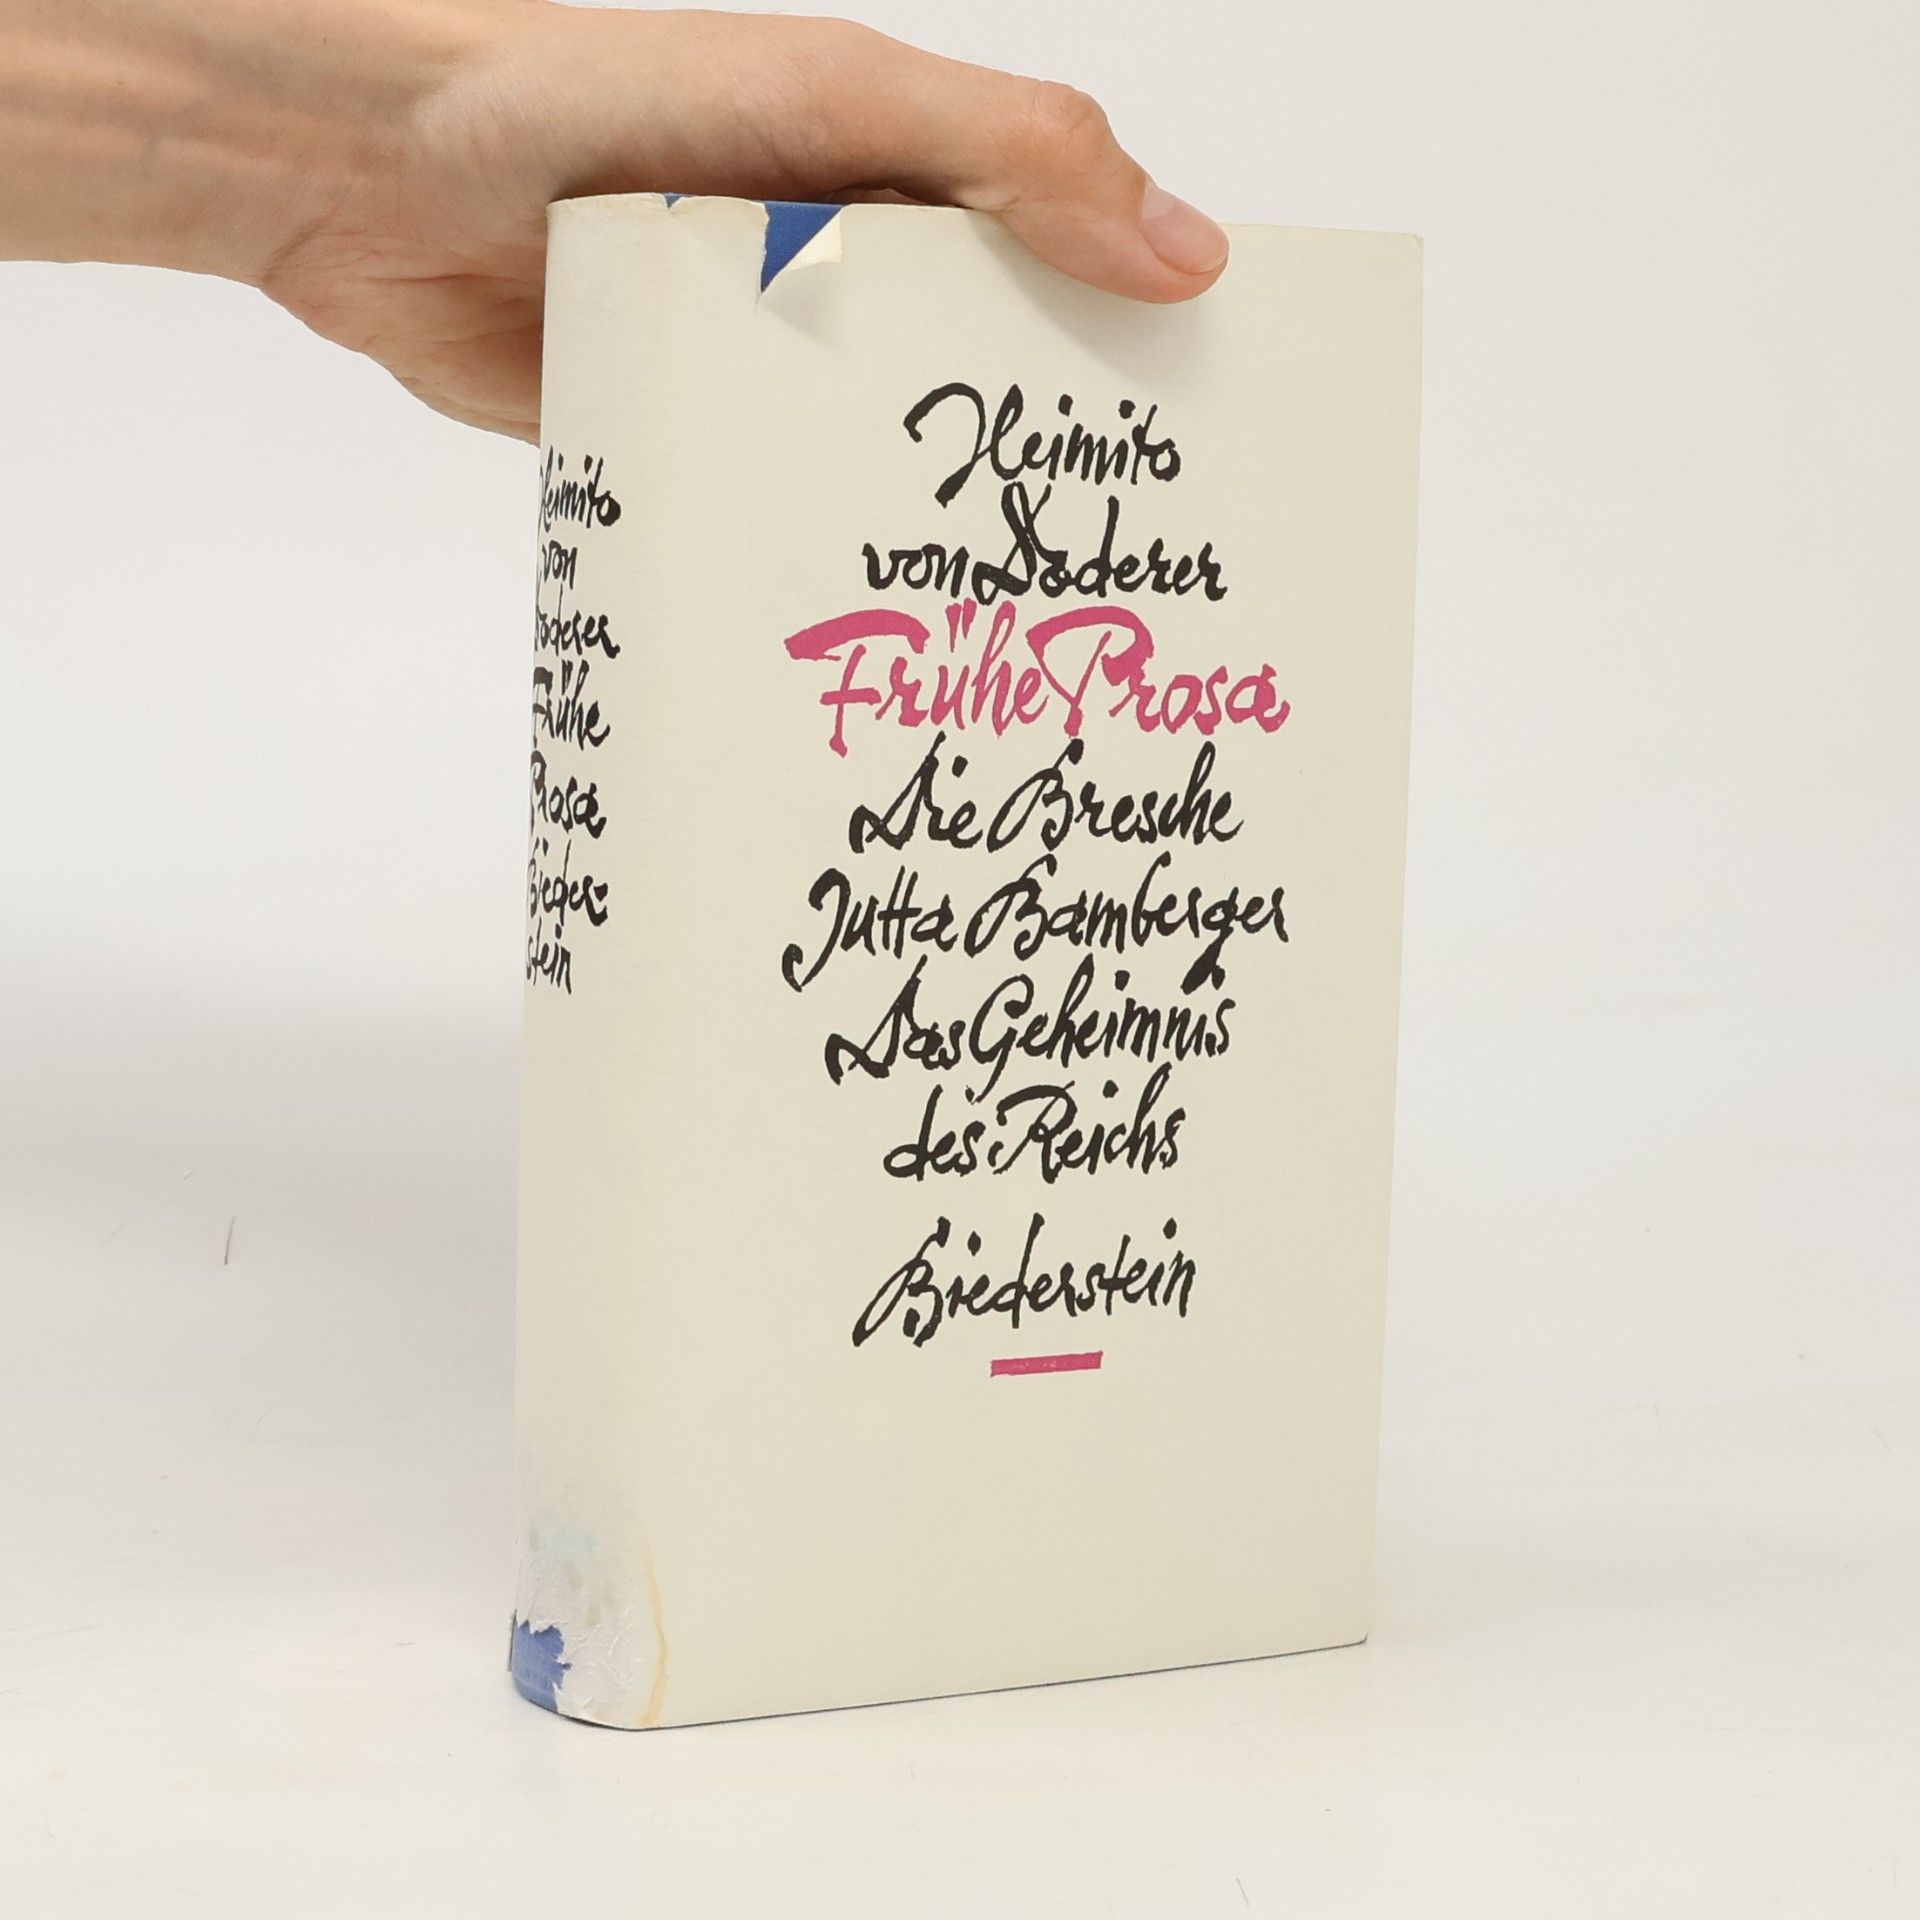 Heimito
von Doderer
Frühe Prosa
Die Bresche
Jutta Bamberger
Das Geheimnis
des Reichs
Biederstein
Heimito
von
Doderer
Frühe
Prosa
Bieder-
stein